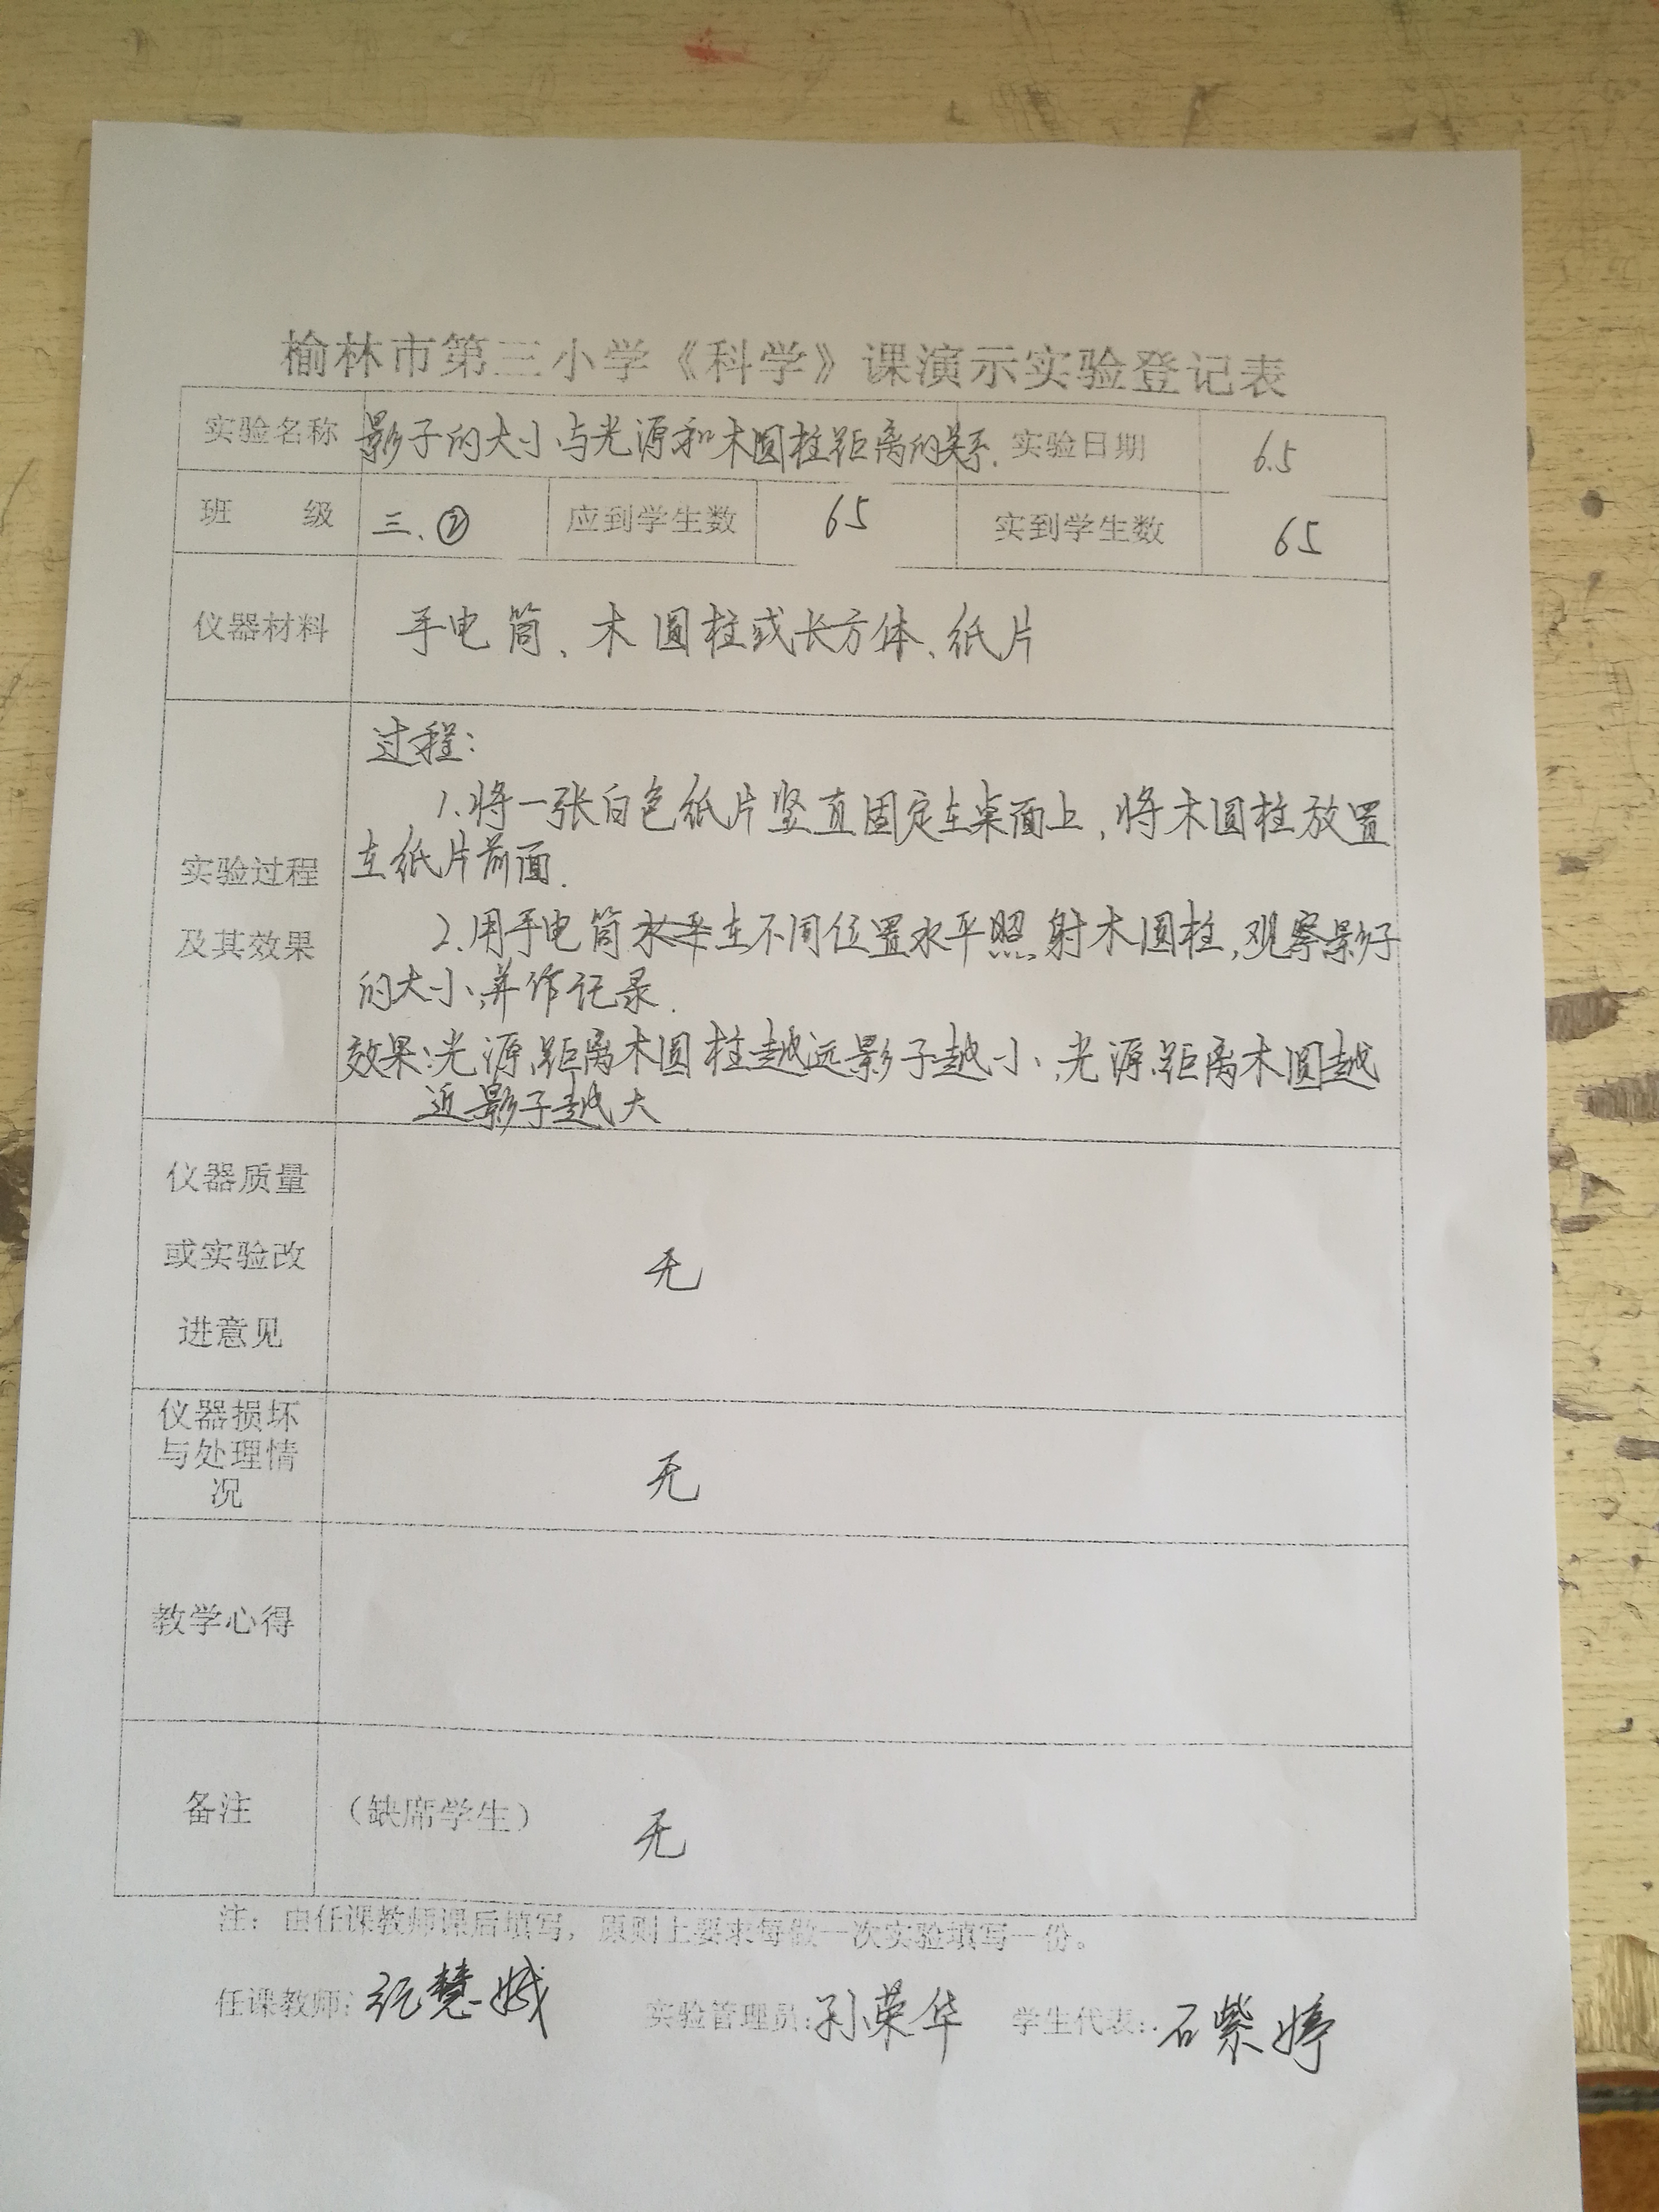 榆林市第三小学《科学》课演示实验登记表
实验名称 影子的大小与光源和木圆柱距离的关系. 实验日期 6.5
班 级 三.② 应到学生数 65 实到学生数 65
仪器材料 手电筒、木圆柱或长方体、纸片
过程:
1.将一张白色纸片竖直固定在桌面上,将木圆柱放置
在纸片前面.
实验过程
及其效果
2.用手电筒水平在不同位置水平照射木圆柱,观察影子
的大小,并作记录.
效果:光源距离木圆柱越远影子越小,光源距离木圆越
近影子越大
仪器质量
或实验改
进意见
无
仪器损坏
与处理情
况
无
教学心得
备注 (缺席学生) 无
注:由任课教师课后填写,原则上要求每做一次实验填写一份。
任课教师:纪慧娥 实验管理员:孙荣华 学生代表:石紫婷